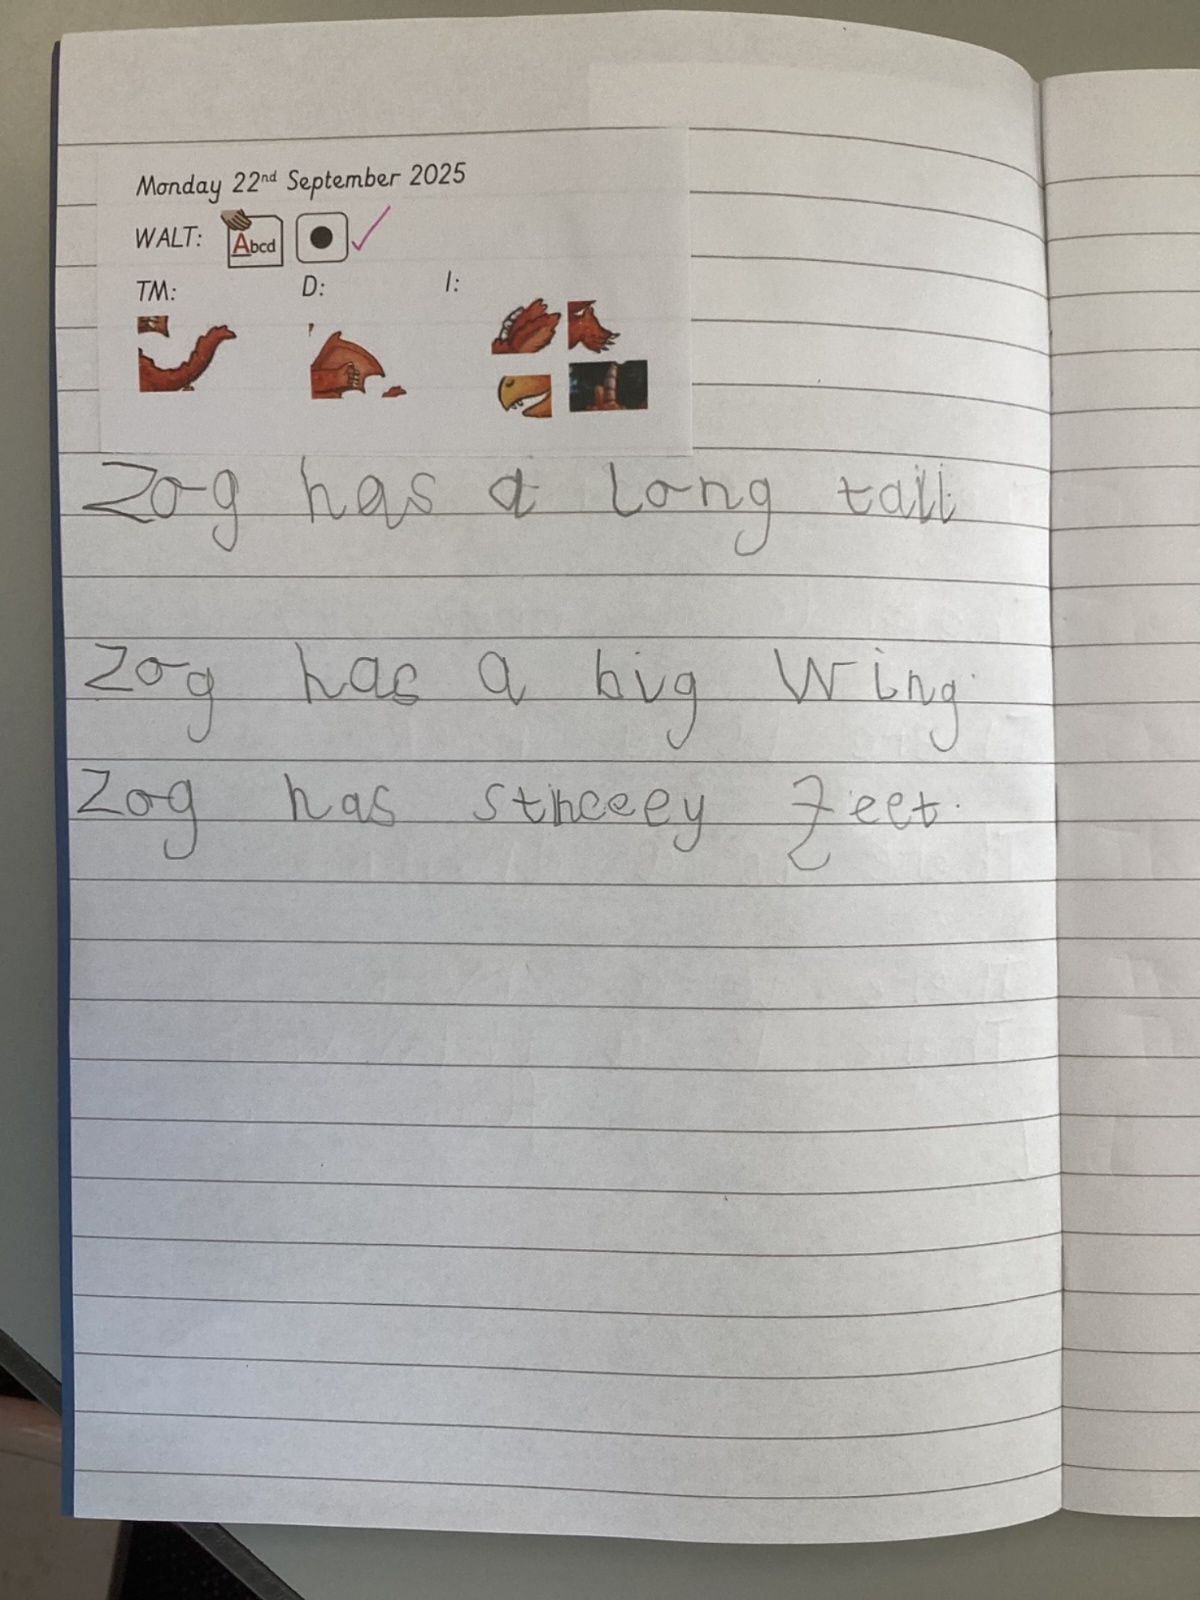 Monday 22nd September 2025
WALT: Abcd
TM: D: I:
Zog has a long tail
Zog has a big Wing.
Zog has feet.